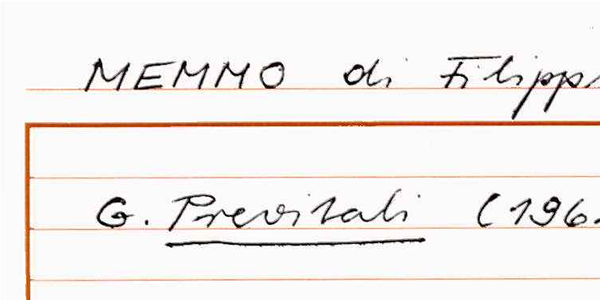 MEMMO di Filipp
G. Previtali (196